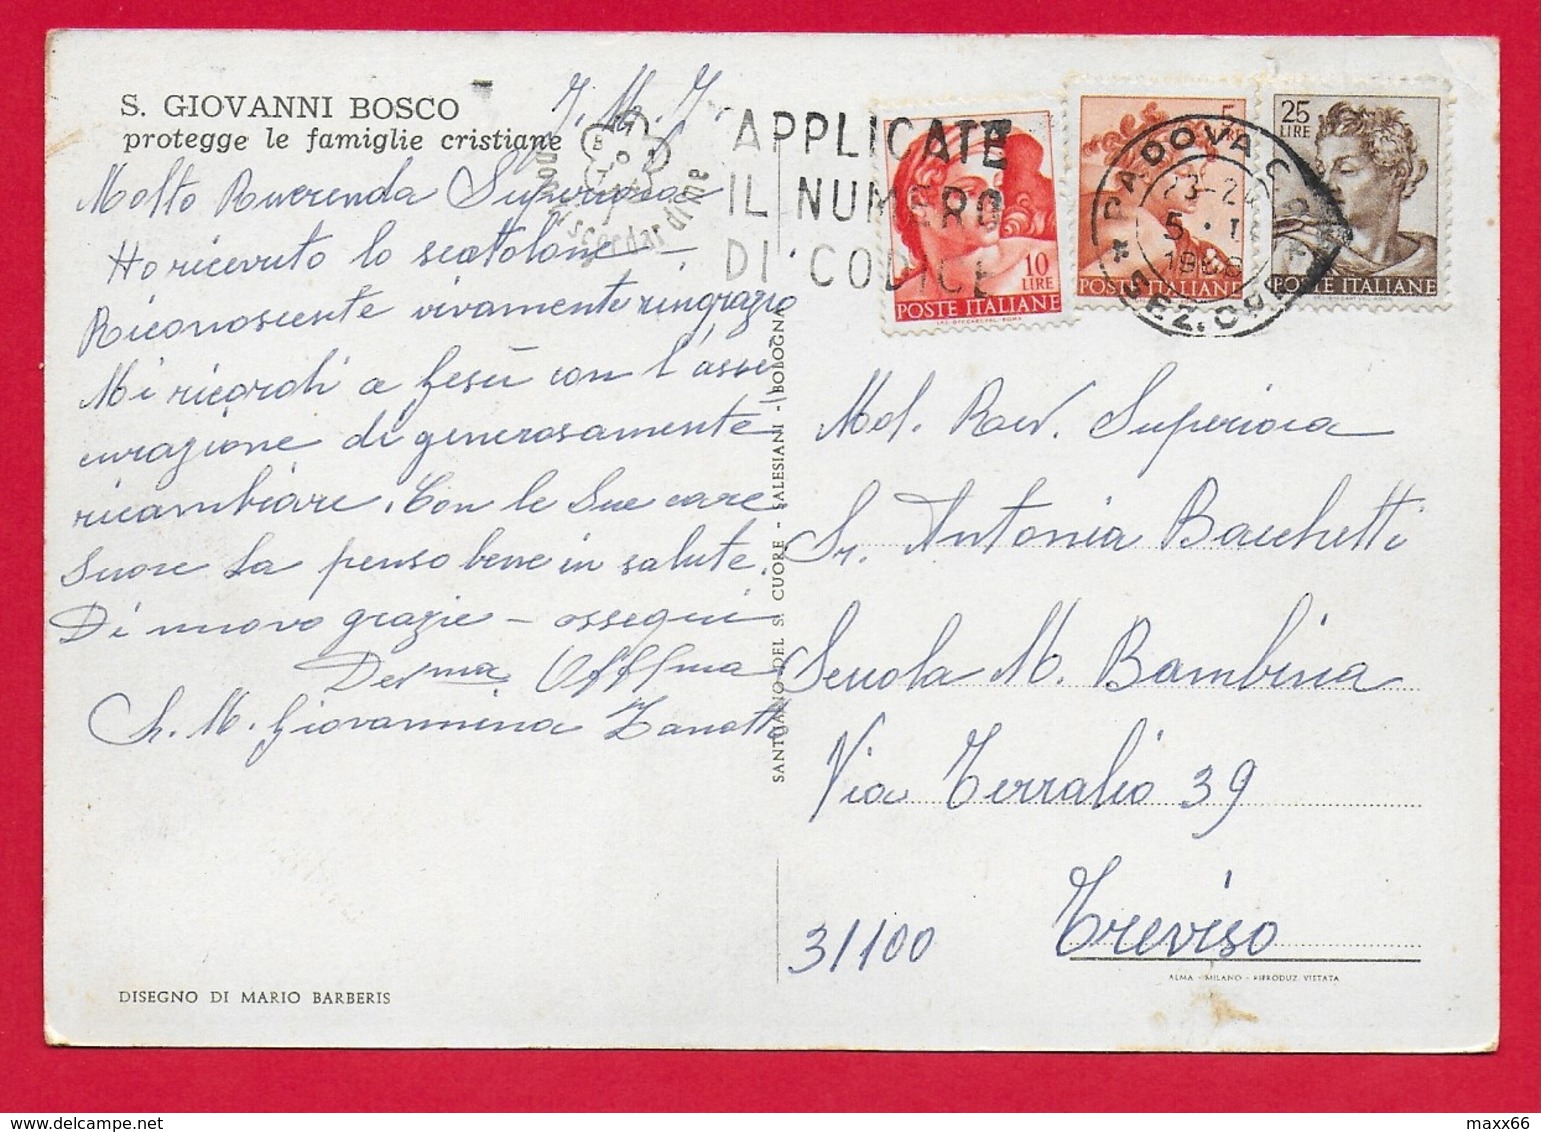 S. GIOVANNI BOSCO
protegge le famiglie cristiane
J. M. J.
Molto Reverenda Superiora
Ho ricevuto lo scatolone -
Riconoscente vivamente ringrazio
Mi ricordi a Gesù con l'assi
curazione di generosamente
ricambiare. Con le Sue care
Suore La penso bene in salute.
Di nuovo grazie - ossequi
Dev.ma Aff.ma
Sr. M. Giovannina Zanotto
DISEGNO DI MARIO BARBERIS
non ti scordar di me
SANTUARIO DEL S. CUORE - SALESIANI - BOLOGNA
APPLICATE
IL NUMERO
DI CODICE
10
LIRE
POSTE ITALIANE
5
LIRE
POSTE ITALIANE
25
LIRE
POSTE ITALIANE
PADOVA C.P.
5 . 1
1968
SEZ.
Mol. Rev. Superiora
Sr. Antonia Bacchetti
Scuola M. Bambina
Via Terralio 39
31100
Treviso
ALMA - MILANO - RIPRODUZ. VIETATA
maxx66